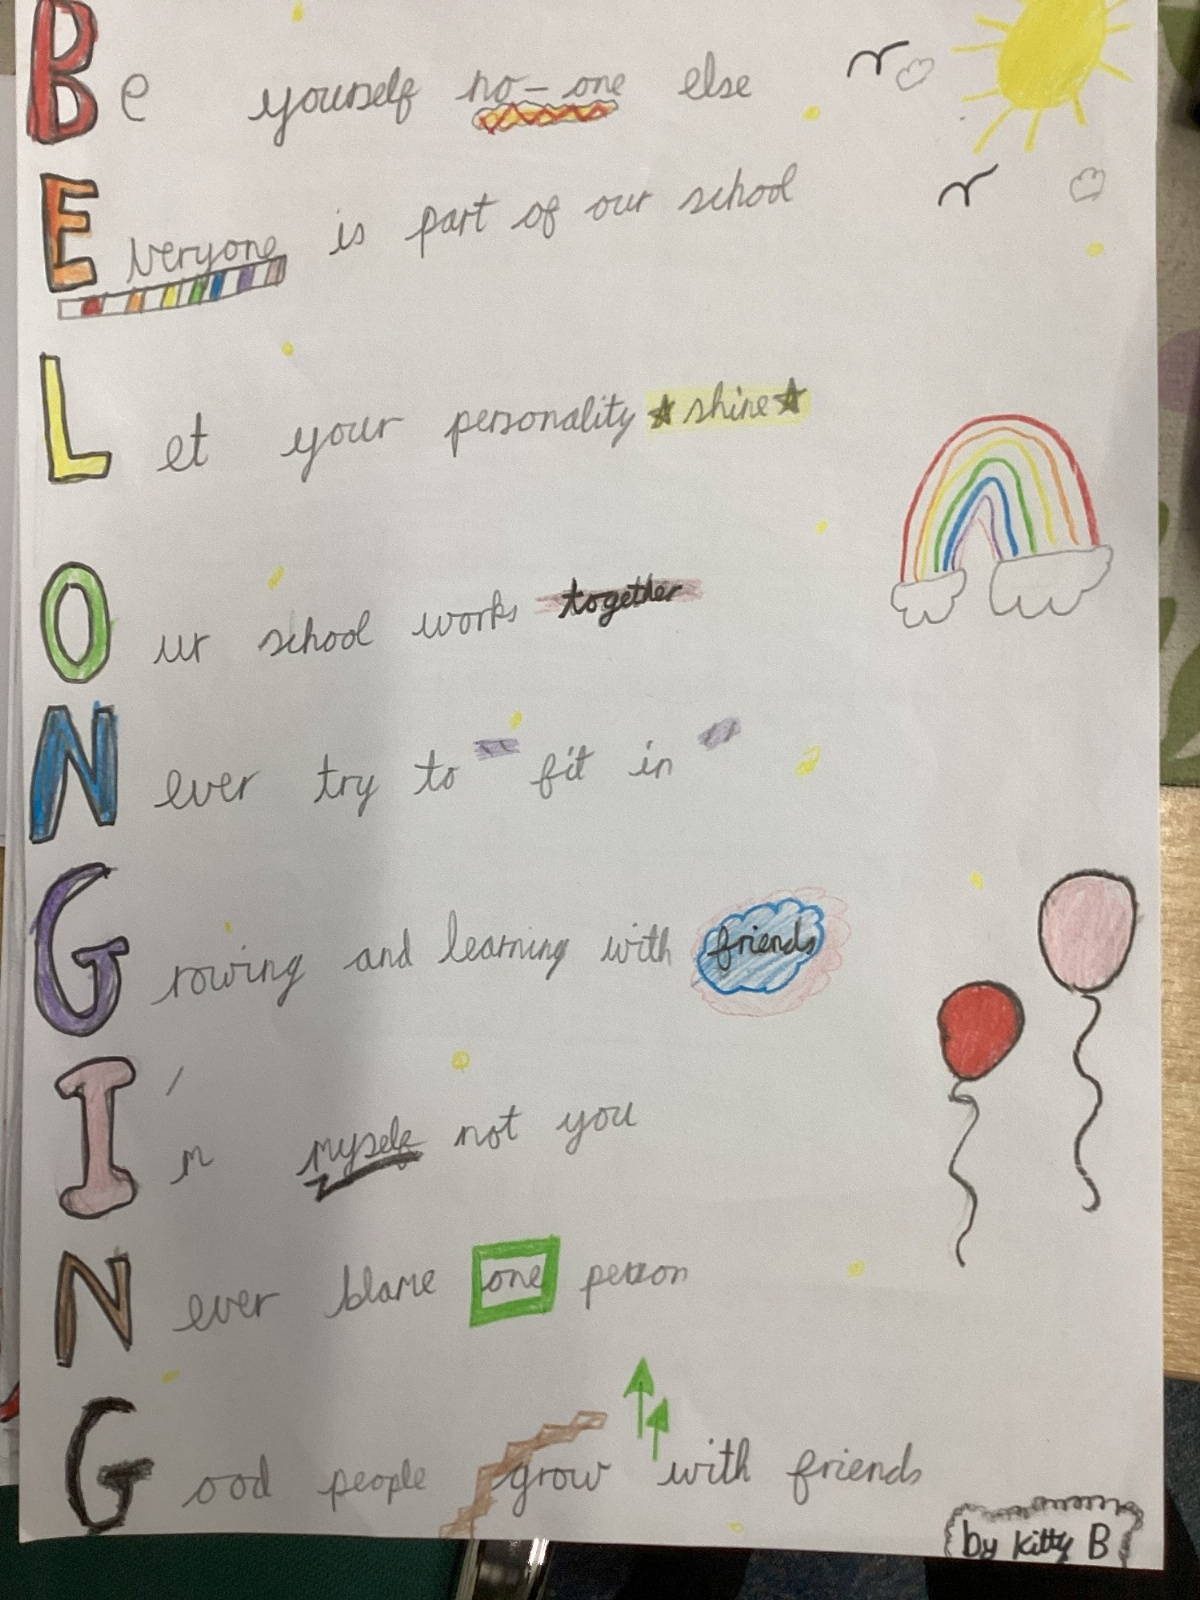 Be yourself no-one else
Everyone is part of our school
Let your personality shine
Our school works together
Never try to fit in
Growing and learning with friends
I'm myself not you
Never blame one person
Good people grow with friends
by Kitty B